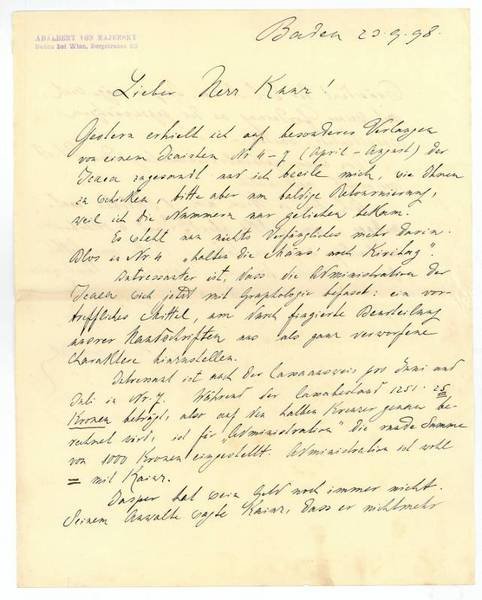 ADALBERT VON MAJERSKY
Baden bei Wien, Bergstrasse 23
Baden 23.9.98.
Lieber Herr Kunz!
Gestern erhielt ich auf besonderes Verlangen
von einem Icaristen Nr 4-7 (April-August) der
Icaea zugesandt und ich beeile mich, sie Ihnen
zu schicken, bitte aber um baldige Retournierung,
weil ich die Nummern nur geliehen bekam.
Es steht nun nichts Verfängliches mehr darin.
Blos in Nr 4 "halten die noch Kirchtag".
Interessanter ist, dass die Administration der
Icaea sich jetzt mit Graphologie befasst: ein vor-
treffliches Mittel, um durch fingierte Beurteilung
unserer Handschriften uns als ganz verworfene
Charaktere hinzustellen.
Interessant ist auch der Cassaausweis pro Juni und
Juli in Nr. 7. Während der Cassabestand 1251.25
Kronen beträgt, also auf den halben Kreuzer genau be-
rechnet wird, ist für "Administration" die runde Summe
von 1000 Kronen eingestellt. Administration ist wohl
= mit Kaiser.
Gasper hat sein Geld noch immer nicht.
Seinem Anwalte sagte Kaiser, dass er nichtmehr